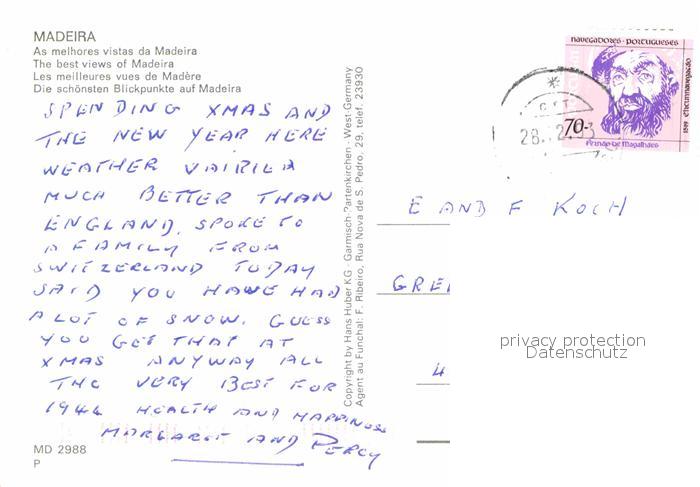 MADEIRA
As melhores vistas da Madeira
The best views of Madeira
Les meilleures vues de Madère
Die schönsten Blickpunkte auf Madeira
SPENDING XMAS AND
THE NEW YEAR HERE
WEATHER
MUCH BETTER THAN
ENGLAND. SPOKE TO
A FAMILY FROM
SWITZERLAND TODAY
SAID YOU HAWE HAD
A LOT OF SNOW. GUESS
YOU GET THAT AT
XMAS ANYWAY ALL
THE VERY BEST FOR
HEALTH AND HAPPINESS
MARGARET AND PERCY
MD 2988
P
Copyright by Hans Huber KG - Garmisch-Partenkirchen - West Germany
Agent au Funchal: F. Ribeiro, Rua Nova de S. Pedro, 29, telef. 23930
NAVEGADORES · PORTUGUESES
70-
Fernão de Magalhães
1º circumnavegação
CTT
E AND F KOCH
GREI
4
privacy protection
Datenschutz